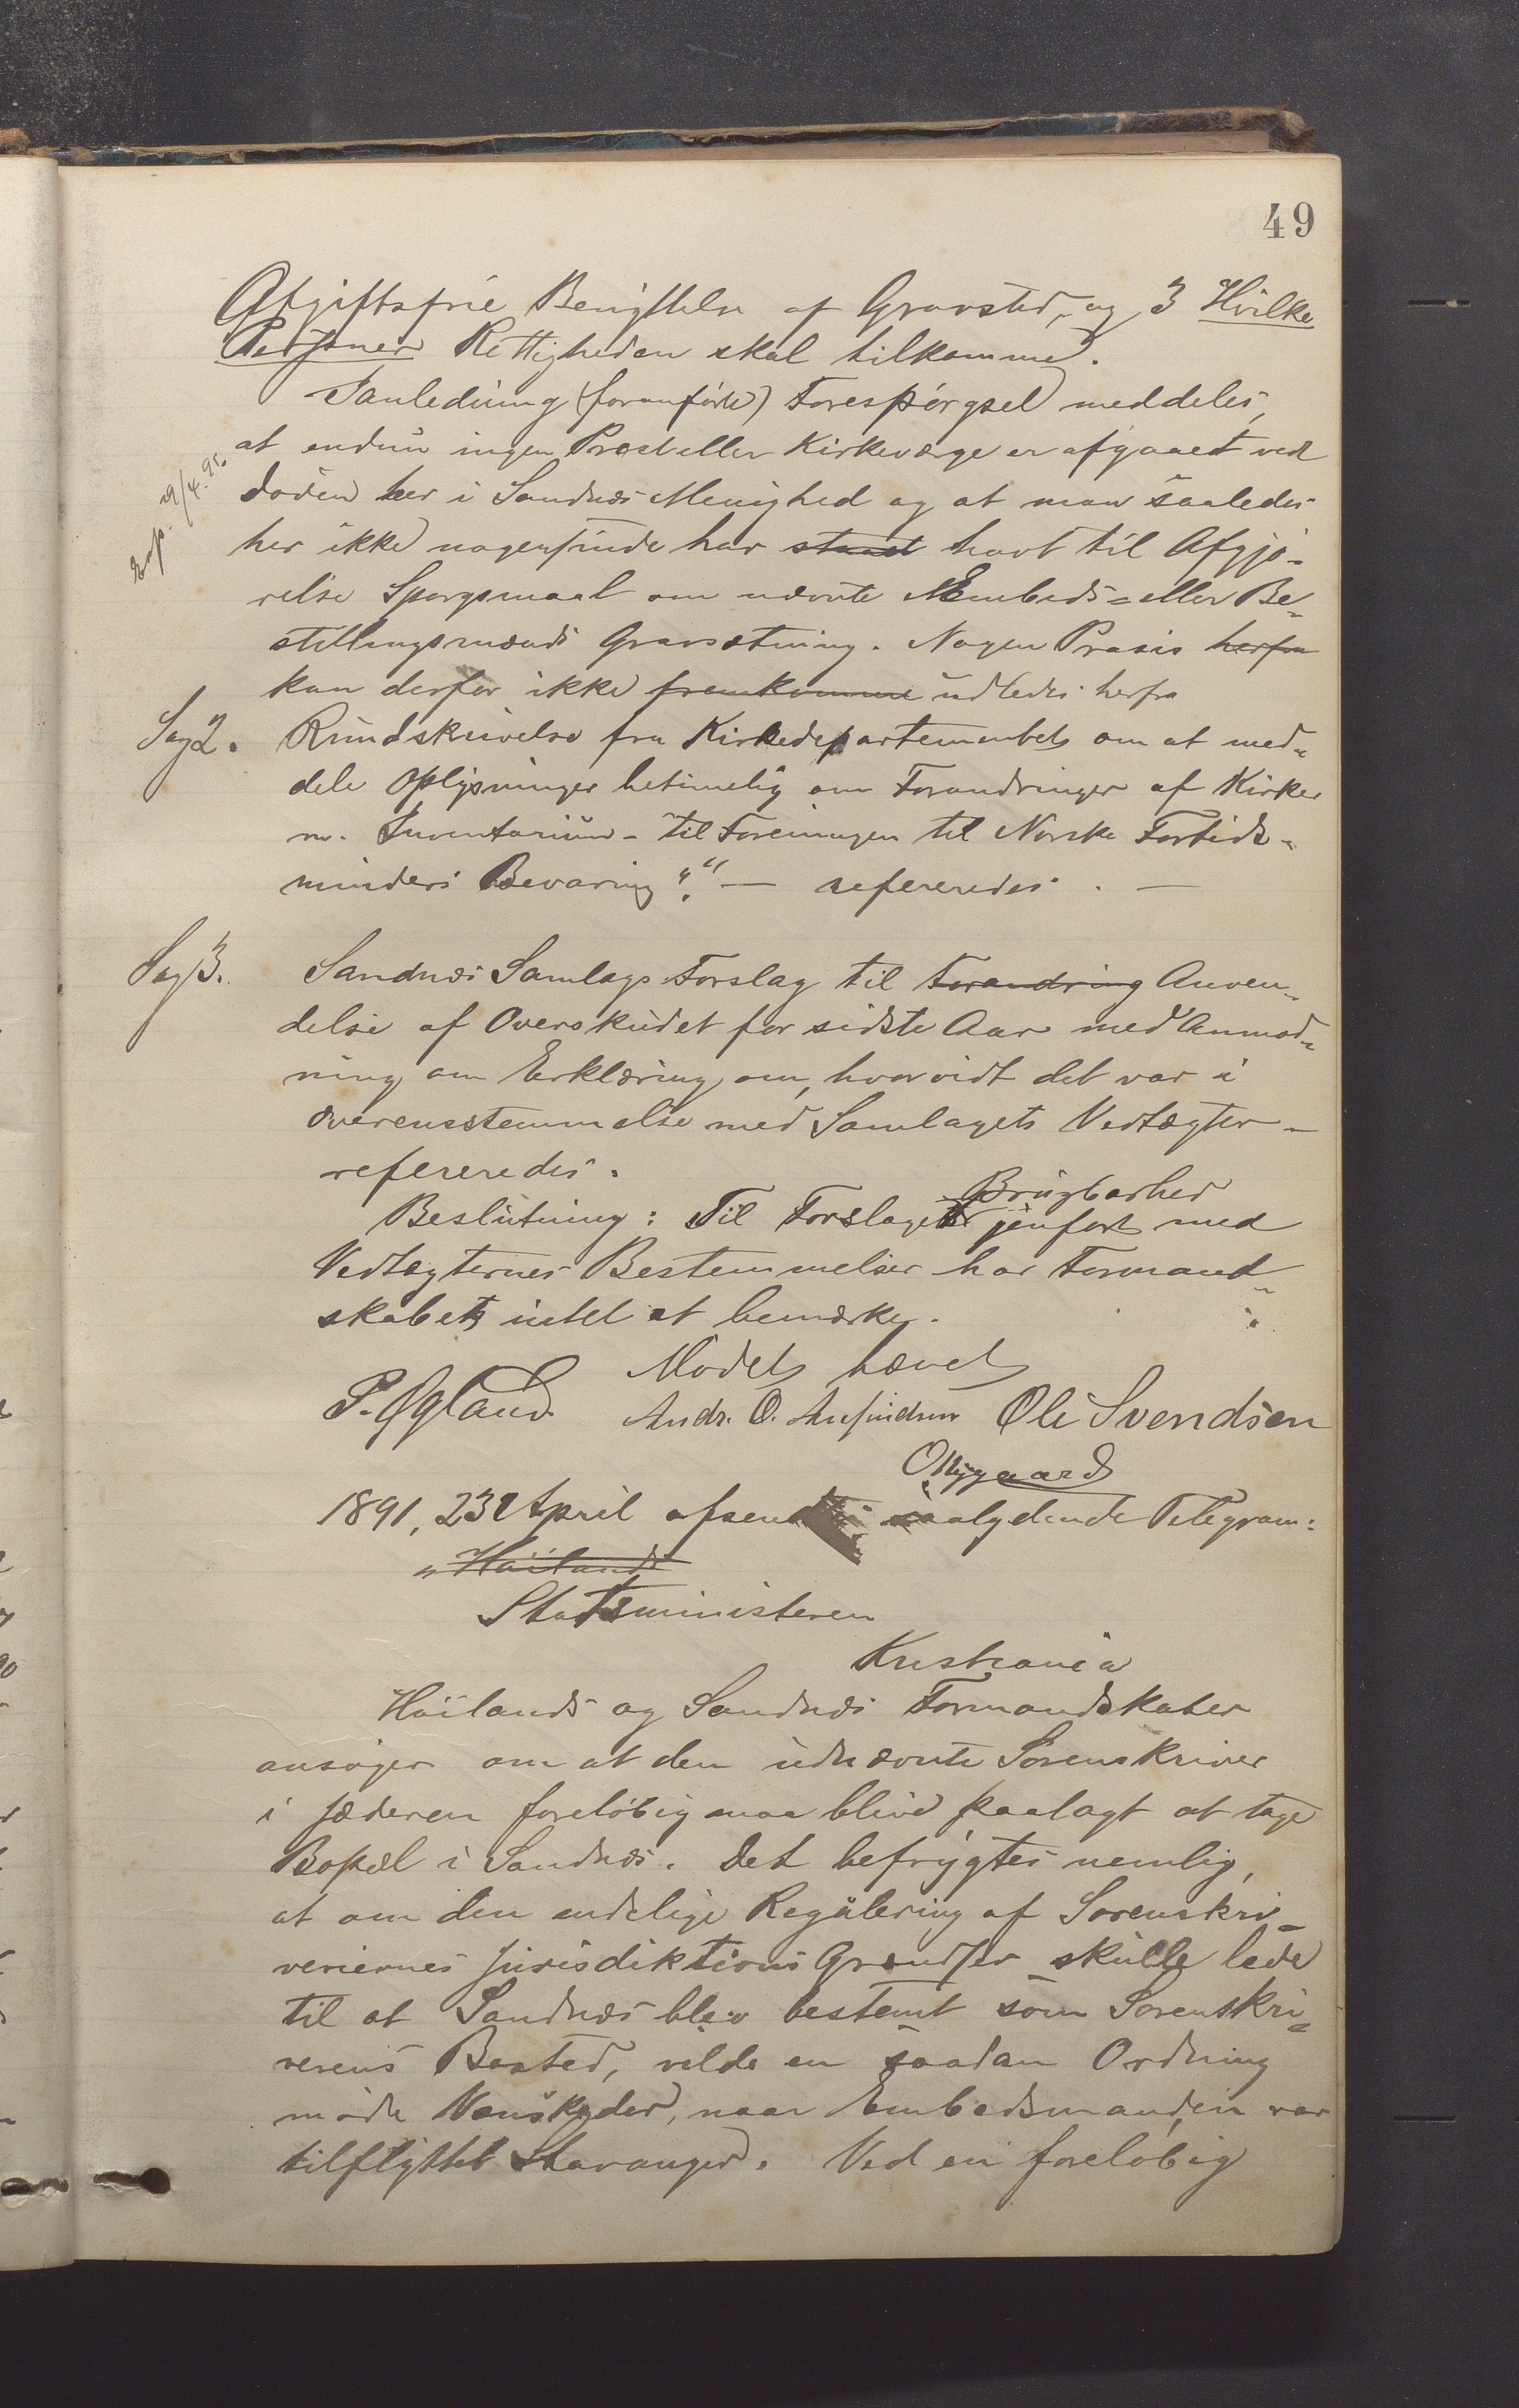 49
Afgiftsfrie Benyttelse af Gravsted, og 3 Hvilke
Personer Rettigheden skal tilkomme.
I anledning (foranførte) Forespørgsel meddeles,
at endnu ingen Præst eller Kirkeværge er afgaaet ved
Exp. 29/4.91.
døden her i Sandnæs Menighed og at man saaledes
her ikke nogensinde har staaet havt til Afgjø-
relse Spørgsmaal om nævnte Embeds- eller Be-
stillingsmænds Gravsætning. Nogen Praxis herfra
kan derfor ikke fremkomme udledes herfra
Sag 2. Rundskrivelse fra Kirkedepartementet om at med-
dele Oplysninger betimelig om Forandringer af Kirker
m. Inventarium - til Foreningen til Norske Fortids-
minders Bevaring". — refereredes. —
Sag 3. Sandnæs Samlags Forslag til Forandring Anven-
delse af Overskudet for sidste Aar med Anmod-
ning om Erklæring om, hvorvidt det var i
overensstemmelse med Samlagets Vedtægter -
refereredes.
Brugbarhed
Beslutning: Til Forslagets jevnført med
Vedtægternes Bestemmelser har Formand-
skabet intet at bemærke.
Mødet hævet
P. Øgland Andr. O. Ole Svendsen
O Nygaard
1891, 23 April afsendtes saalydende Telegram:
"Høilands
Statsministeren
Kristiania
Høilands og Sandnæs Formandskaber
ansøger om at den udnævnte Sorenskriver
i Jæderen foreløbig maa blive paalagt at tage
Bopæl i Sandnæs. Det befrygtes nemlig,
at om den endelige Regulering af Sorenskri-
veriernes Jurisdiktions Grændser skulle lede
til at Sandnæs blev bestemt som Sorenskri-
verens Bosted, vilde en saadan Ordning
møde Vanskeder, naar Embedsmanden var
tilflyttet Stavanger. Ved en foreløbig